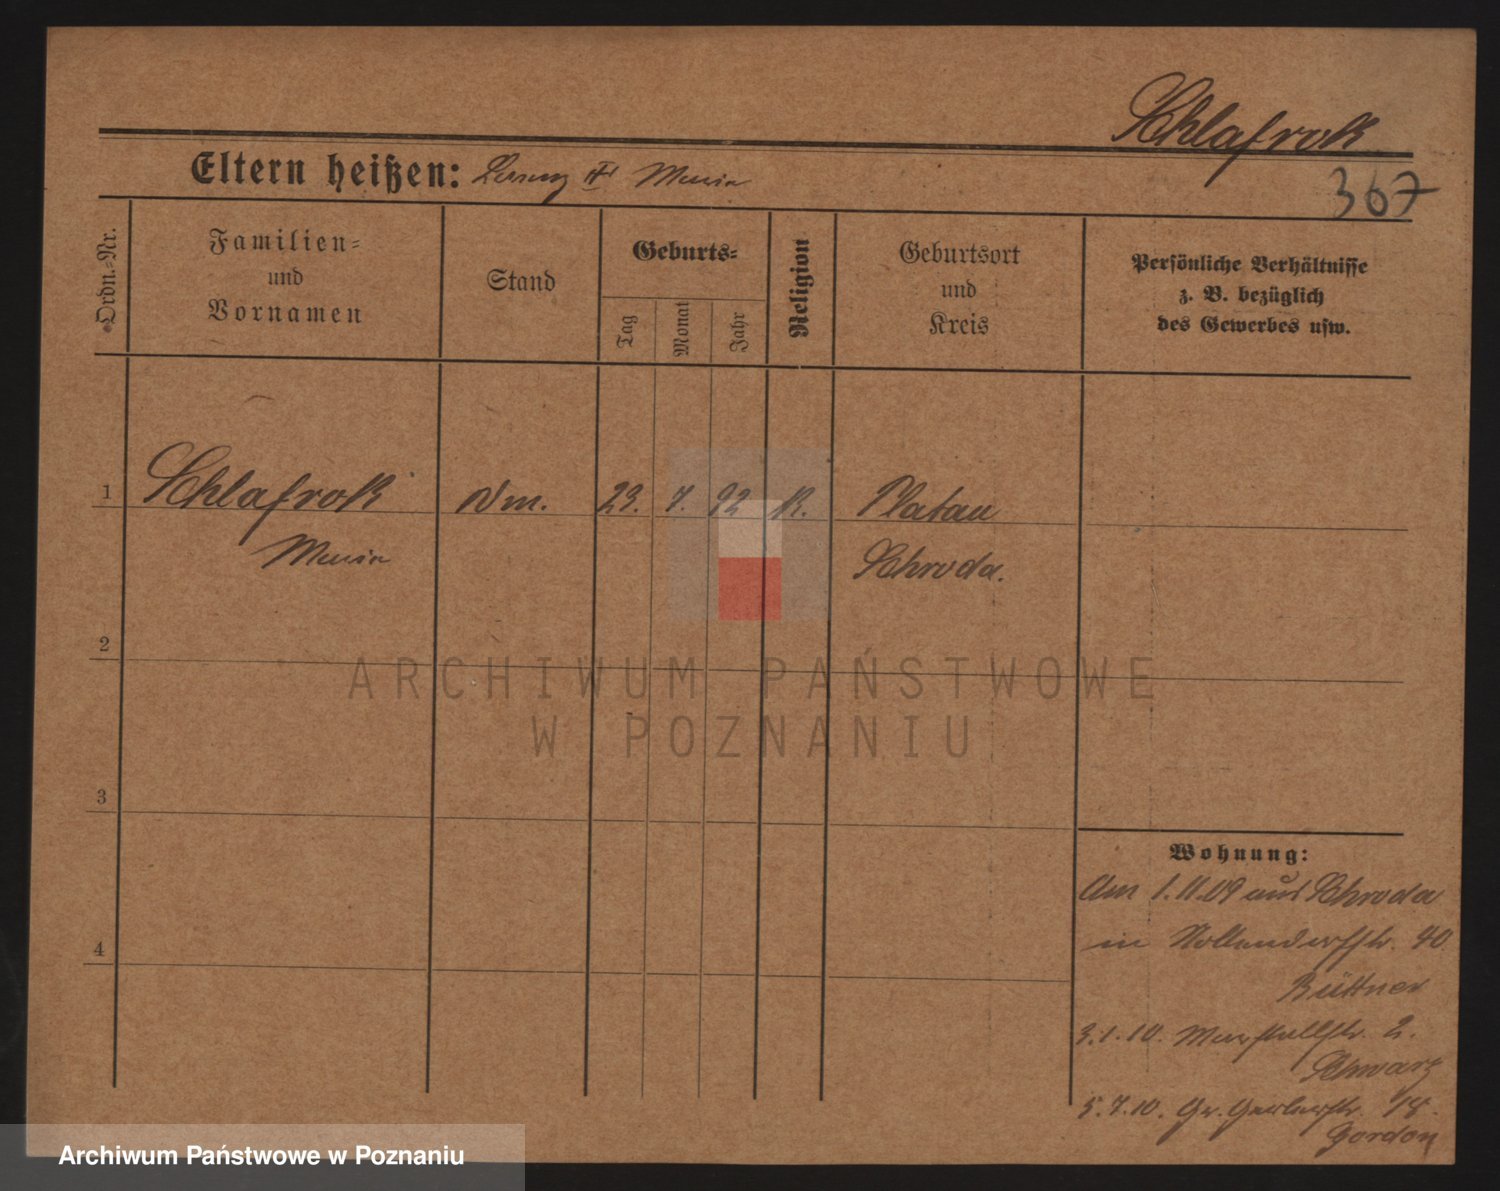 Schlafrok
Eltern heißen: Lorenz Maria
367
Ordn.-Nr.
Familien-
und
Vornamen
Stand
Geburts-
Tag
Monat
Jahr
Religion
Geburtsort
und
Kreis
Persönliche Verhältnisse
z. B. bezüglich
des Gewerbes usw.
1 Schlafrok Dm. 23. 7. 92 K. Platau
Maria Schroda.
2
3
4
ARCHIWUM PAŃSTWOWE
W POZNANIU
Wohnung:
Am 1.11.09 aus Schroda
in Nollendorfstr. 40
Büttner
3.1.10. Marstallstr. 2.
Schwarz
5.7.10. Gr. Gerberstr. 18.
Gordon
Archiwum Państwowe w Poznaniu